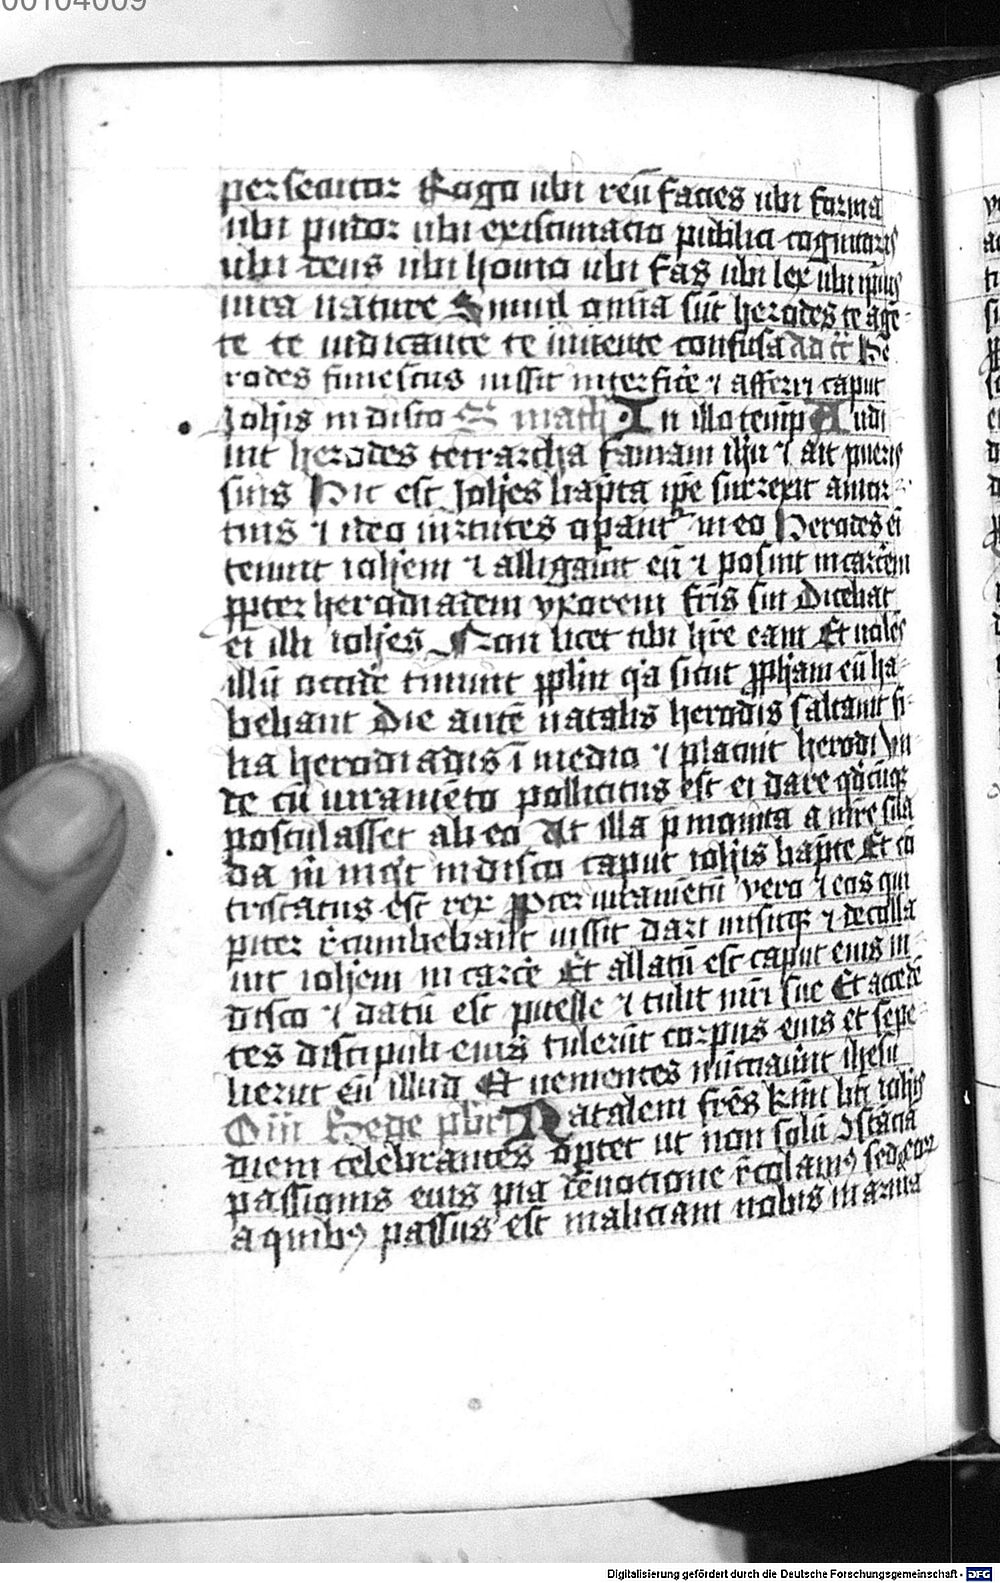 00104009
persecutor Rogo ubi reū facies ubi forma
ubi pudor ubi existimacio publici cognitoris
ubi deus ubi homo ubi fas ubi lex ubi ipius
iura nature Simul om̄ia sūt herodes te agē
te te iudicante te iubente confusa ad c̄c̄ He
rodes funestus iussit interfic̄e ⁊ afferri caput
Joh̄is in disco S math In illo temp̄ Audi
uit herodes tetrarcha famam ih̄u ⁊ ait pueris
suis Hic est Joh̄es bap̄ta ip̄e surrexit a mor
tuis ⁊ ideo uirtutes opant᷑ in eo Herodes ei
tenuit ioh̄em ⁊ alligauit eū ⁊ posuit in carc̄em
ꝓpter herodiadem uxorem fr̄is sui Dicebat
ei illi ioh̄es Non licet tibi hr̄e eam Et uolēs
illū occid̄e timuit ꝓplm̄ q̄a sicut ꝓph̄am eū ha
bebant Die autē natalis herodis saltauit fi
lia herodiadis ī medio ⁊ placuit herodi Vn
de cū iuramēto pollicitus est ei dare qd̄cūqꝫ
postulasset ab eo At illa p̄monita a mr̄e sua
da m̄ inq̄t in disco caput ioh̄is bap̄te Et cō
tristatus est rex ꝓpter iuramentū vero ⁊ eos qui
piter r̄cumbebant iussit dari misitqꝫ ⁊ decolla
uit ioh̄em in carc̄e Et allatū est caput eius in
disco ⁊ datū est puelle ⁊ tulit mr̄i sue Et accedē
tes discipuli eius tulerūt corpus eius et sepe
lierūt eū illud Et uenientes nūctiauerūt ihesu
Om̄ Bede pb̄ri Natalem fr̄es km̄i bt̄i ioh̄is
diem celebrantes oportet ut non solū ꝯstācia
passionis eius pia deuocione r̄colamꝰ sed
a quibꝰ passus est maliciam nobis in
Digitalisierung gefördert durch die Deutsche Forschungsgemeinschaft - DFG